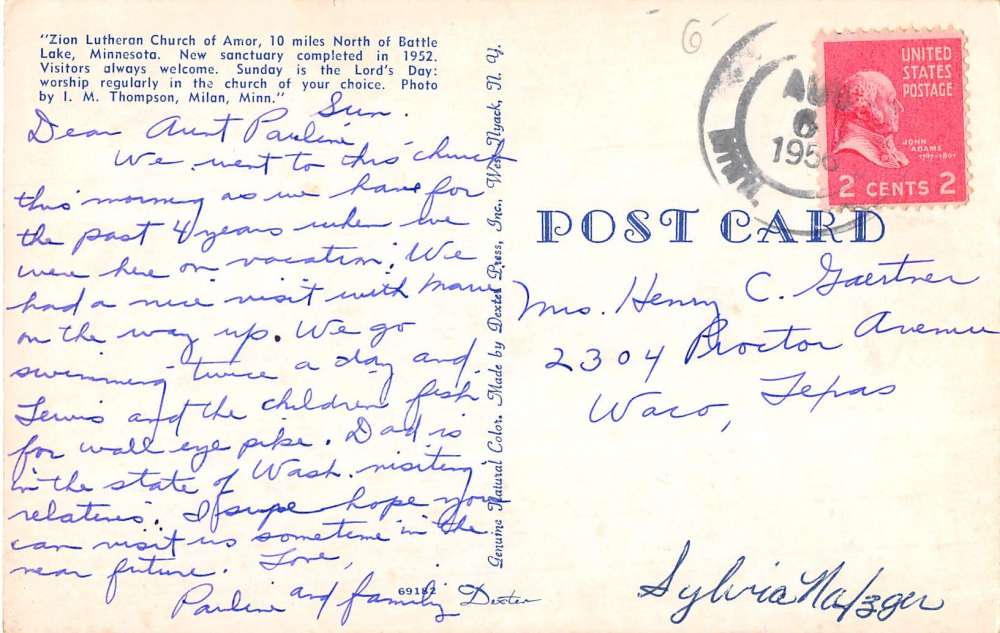 "Zion Lutheran Church of Amor, 10 miles North of Battle
Lake, Minnesota. New sanctuary completed in 1952.
Visitors always welcome. Sunday is the Lord's Day:
worship regularly in the church of your choice. Photo
by I. M. Thompson, Milan, Minn."
Sun.
Dear Aunt Pauline
We went to this church
this morning as we have for
the past 4 years when we
were here on vacation. We
had a nice visit with Marie
on the way up. We go
swimming twice a day and
Lewis and the children fish
for wall eye pike. Dad is
in the state of Wash. visiting
relatives. I hope you
can visit us sometime in the
near future. Love,
Pauline and family
69182 Dexter
Genuine Natural Color. Made by Dexter Press, Inc., West Nyack, N. Y.
6
AUG
6
1956
MINN.
UNITED
STATES
POSTAGE
JOHN
ADAMS
1797-1801
2 CENTS 2
POST CARD
Mrs. Henry C. Gaertner
2304 Proctor Avenue
Waco, Texas
Sylvia Nafzger